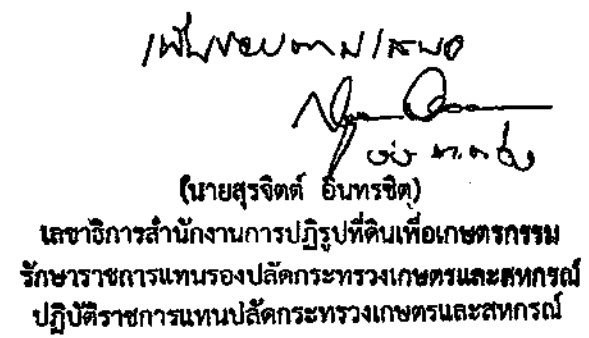 เห็นชอบตามเสนอ
(นายสุรจิตต์ อินทรชิต)
เลขาธิการสำนักงานการปฏิรูปที่ดินเพื่อเกษตรกรรม
รักษาราชการแทนรองปลัดกระทรวงเกษตรและสหกรณ์
ปฏิบัติราชการแทนปลัดกระทรวงเกษตรและสหกรณ์